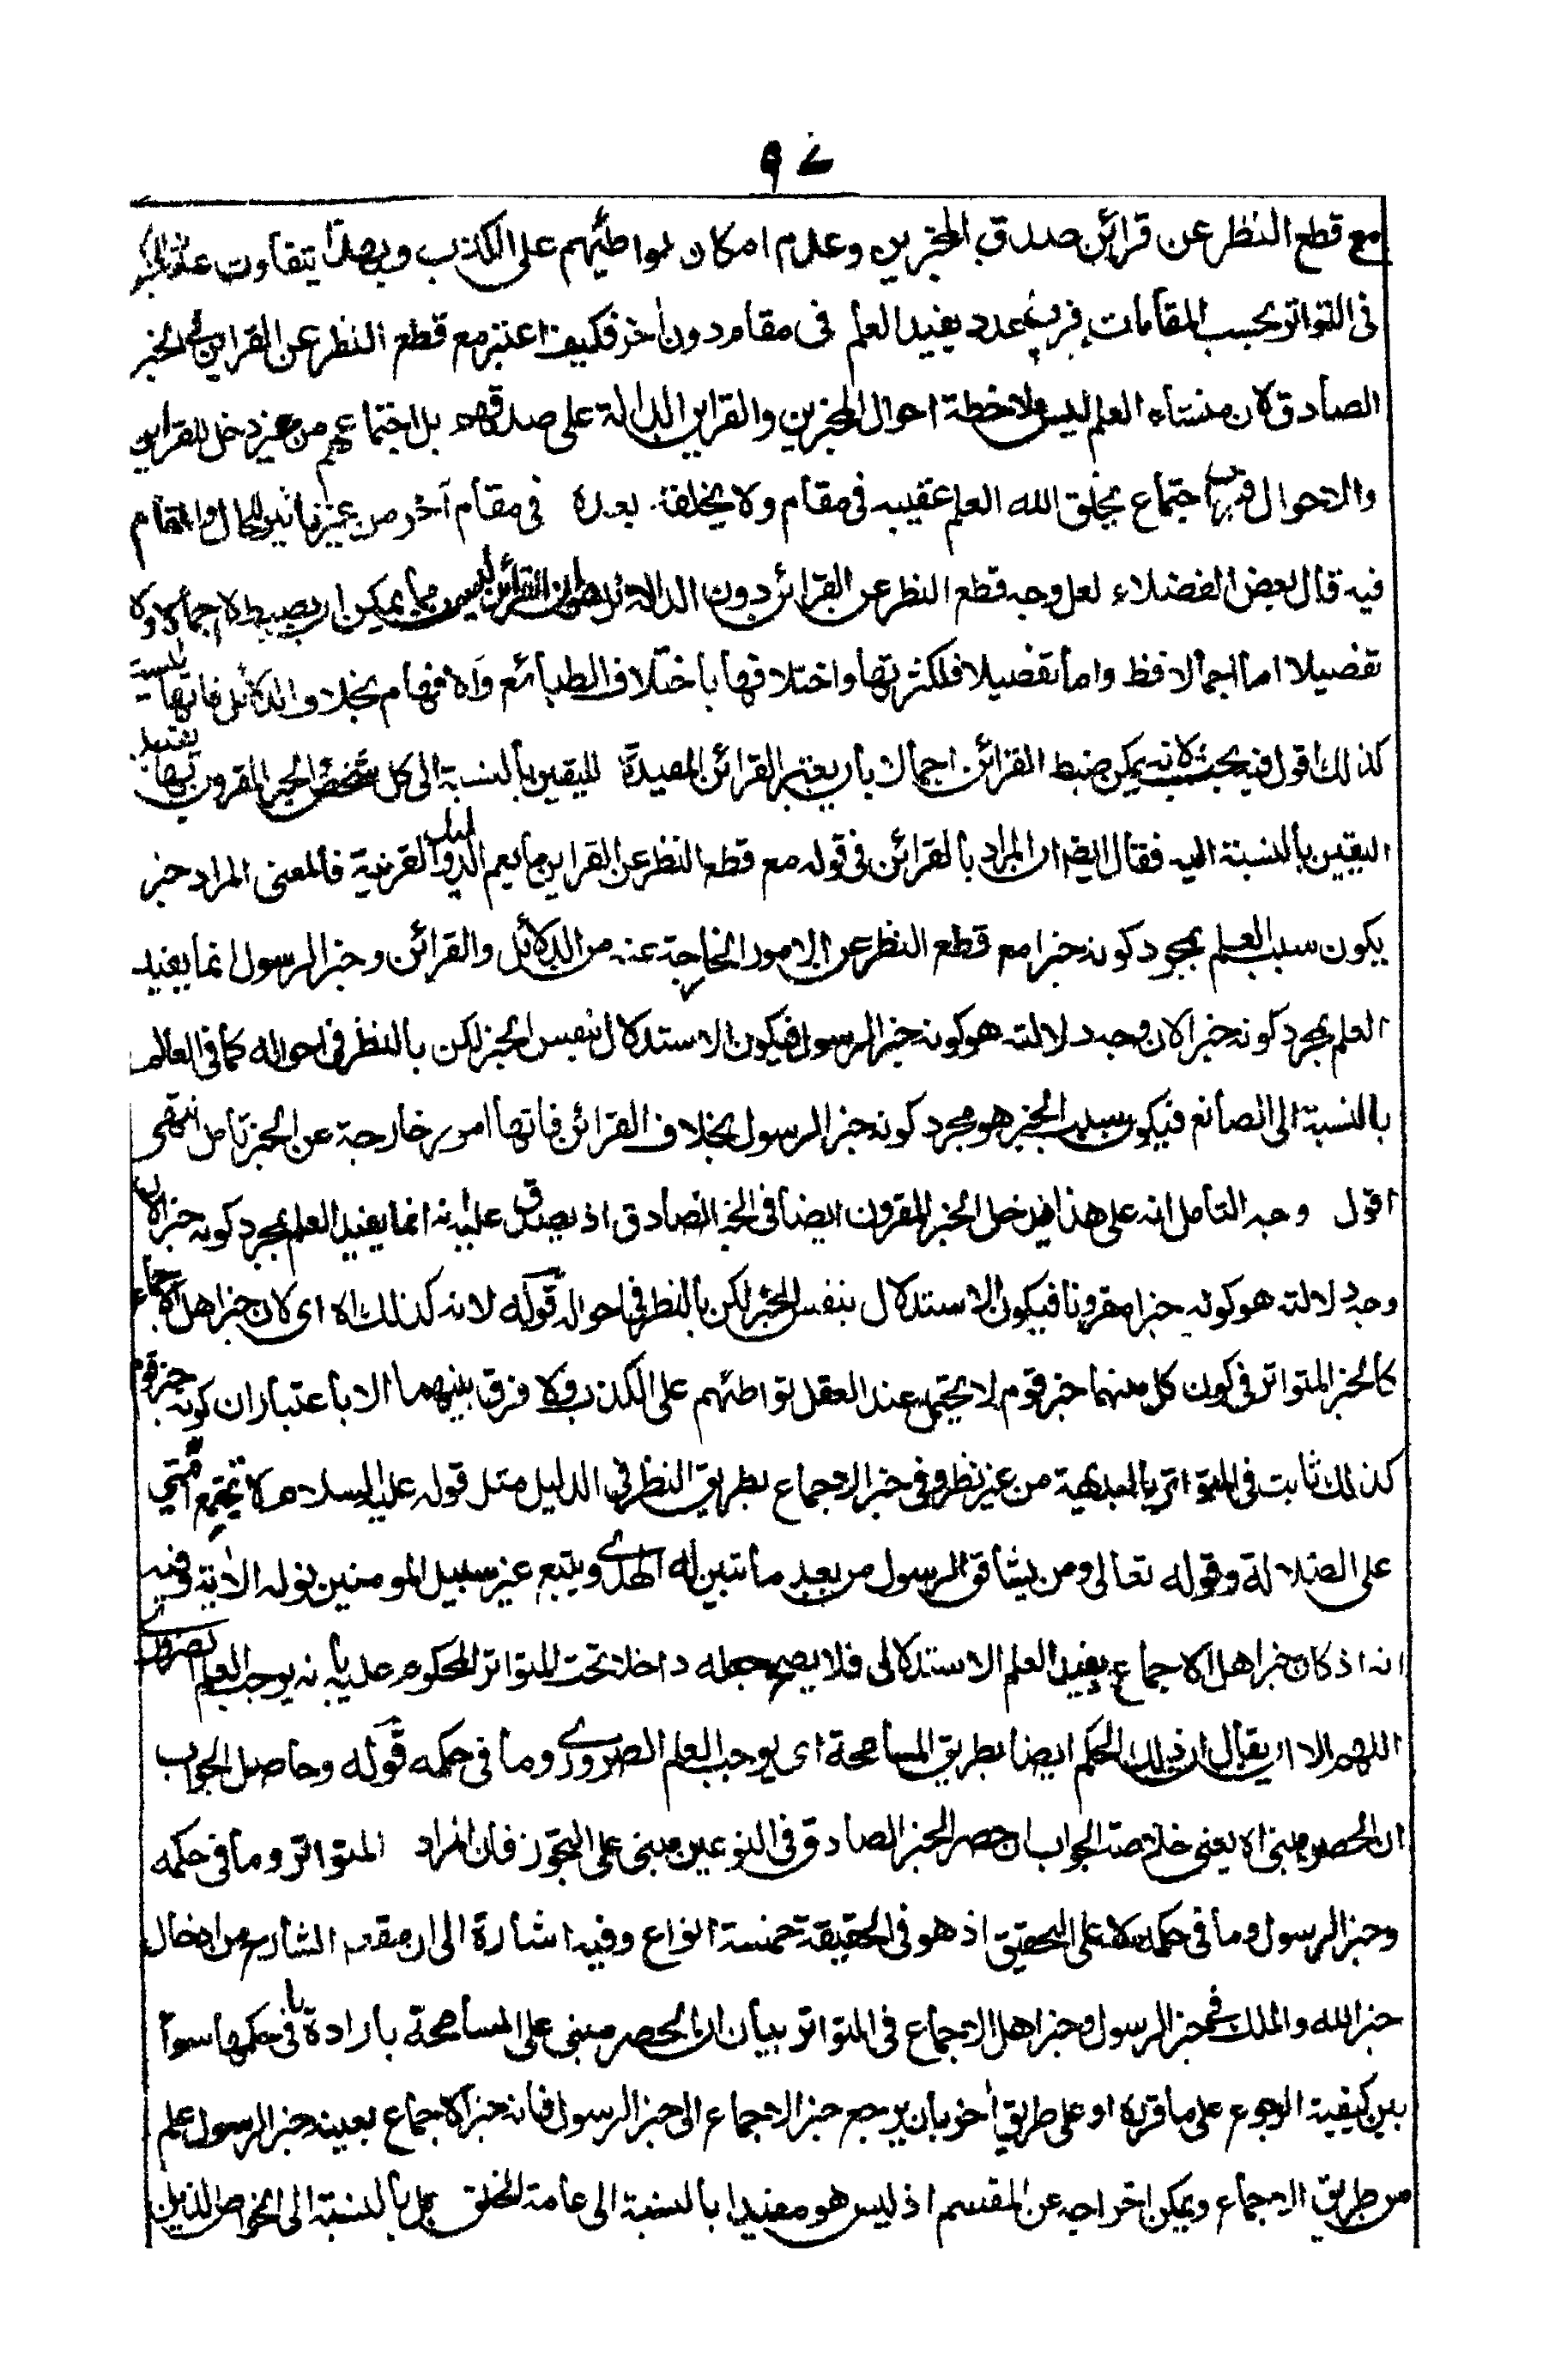 مع قطع النظر عن قرائن صدق المخبرين وعدم امكان تواطئهم على الكذب وبهذا يتفاوت عدد المخبر
فى التواتر بحسب المقامات فرب عدد يفيد العلم فى مقام دون أخر فكيف اعتبر مع قطع النظر عن القراين فى الخبر
الصادق لان منشاء العلم ليس ملاحظة احوال المخبرين والقراين الدالة على صدقهم بل اجتماعهم من غير دخل للقراين
والاحوال فرب اجتماع يخلق الله العلم عقيبه فى مقام ولا يخلقه بعده فى مقام آخر من غير تاثير للحال والمقام
فيه قال بعض الفضلاء لعل وجه قطع النظر عن القرائن دون الدلائل ان القرائن ليس مما يمكن ان يضبط لا اجمالا ولا
تفضيلا اما اجمالا فظ واما تفضيلا فلكثرتها واختلافها باختلاف الطبائع والافهام بخلاف الدلائل فانها ليست
كذلك اقول فيه بحث لانه يمكن ضبط القرائن اجمالا بان يعتبر القرائن المفيدة لليقين بالنسبة الى كل شخص الخبر المقرون بها يفيد
اليقين بالنسبة اليه فقال ايضا ان المراد بالقرائن فى قوله مع قطع النظر عن القراين ما يعم الدليل والقرنية فالمعنى المراد خبر
يكون سبب العلم بمجرد كونه خبرا مع قطع النظر عن الامور الخارجة عنه من الدلائل والقرائن وخبر الرسول انما يفيد
العلم بمجرد كونه خبرا لان وجه دلالته هو كونه خبر الرسول فيكون الاستدلال بنفس الخبر لكن بالنظر فى احواله كما فى العالم
بالنسبة الى الصانع فيكون سبب الخبر هو مجرد كونه خبر الرسول بخلاف القرائن فانها امور خارجة عن الخبر تامل انتهى
اقول وجه التامل انه على هذا يدخل الخبر المقرون ايضا فى الخبر الصادق اذ يصدق عليه انه انما يفيد العلم بمجرد كونه خبرا لان
وجه دلالته هو كونه خبرا مقرونا فيكون الاستدلال بنفس الخبر لكن بالنظر فى احواله قوله لانه كذلك اه اى لان خبر اهل الاجماع
كالخبر المتواتر فى كون كل منهما خبر قوم لا يحتمل عند العقل تواطئهم على الكذب ولا فرق بينهما الا باعتبار ان كونه خبر قوم
كذلك ثابت فى المتواتر بالبداهية من غير نظر وفى خبر الاجماع بطريق النظر فى الدليل مثل قوله عليه السلام لا تجتمع امتي
على الضلالة وقوله تعالى ومن يشاقق الرسول من بعد ما تبين له الهدى ويتبع غير سبيل المومنين نوله الاية فيه
انه اذ كان خبر اهل الاجماع يفيد العلم الاستدلالى فلا يصح جعله داخلا تحت المتواتر المحكوم عليه بانه يوجب العلم الضروري
اللهم الا ان يقال ان ذلك الحكم ايضا بطريق المسامحة اى يوجب العلم الضروري وما فى حكمه قوله وحاصل الجواب
ان الحصر مبنى اه يعنى خلاصة الجواب ان حصر الخبر الصادق فى النوعين مبنى على التجوز فان المراد المتواتر وما فى حكمه
وخبر الرسول وما فى حكمه لا على التحقيق اذ هو فى الحقيقة خمسة انواع وفيه اشارة الى ان مقصود الشارح من ادخال
خبر الله والملك فى خبر الرسول وخبر اهل الاجماع فى المتواتر بيان ان الحصر مبنى على المسامحة بارادة ما فى حكمها سواء
بين كيفية الرجوع على ما قرره او على طريق أخر بان يرجع خبر الاجماع الى خبر الرسول فانه خبر الاجماع بعينه خبر الرسول علم
من طريق الاجماع ويمكن اخراجه عن المقسم اذ ليس هو مفيدا بالنسبة الى عامة الخلق بل بالنسبة الى الخواص الذين